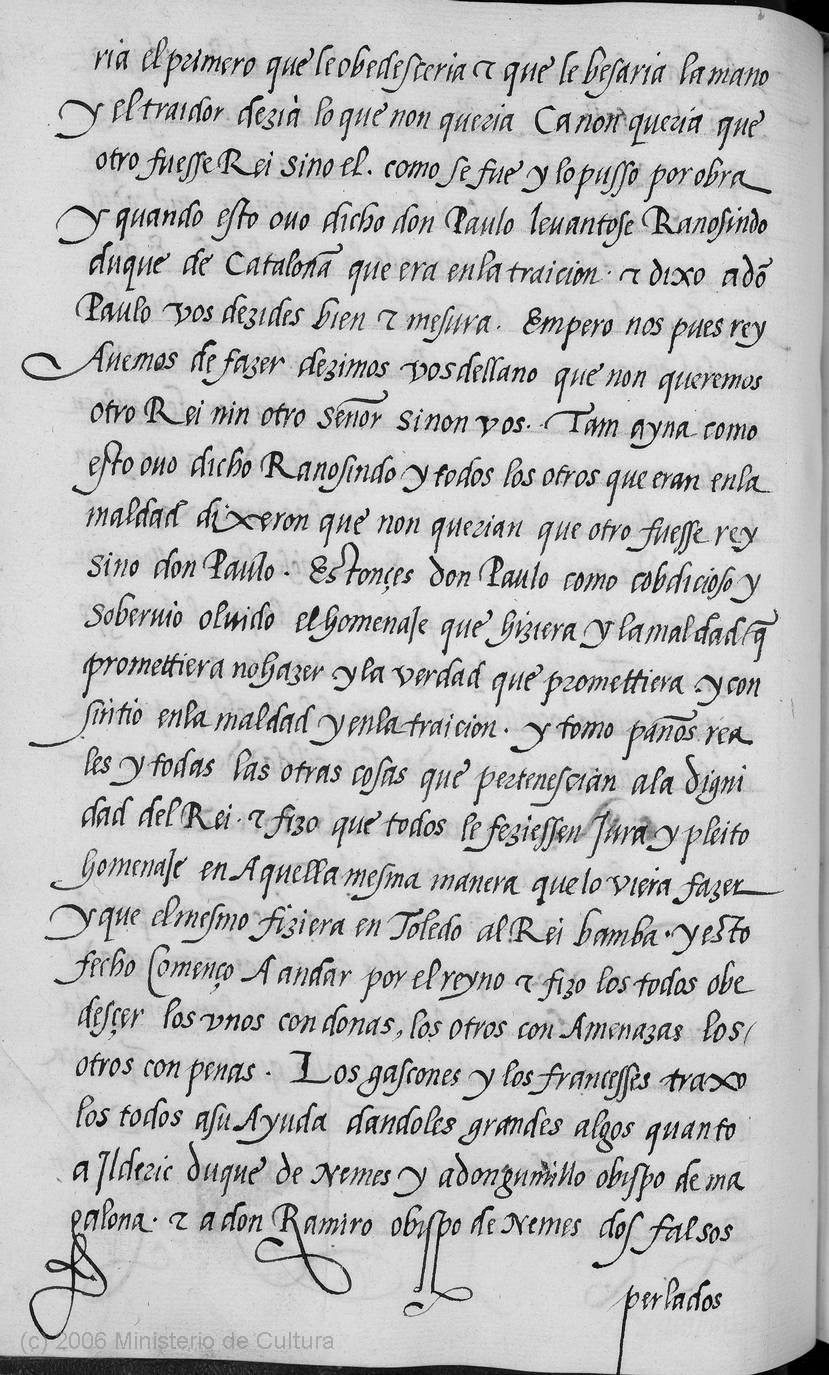 ria el primero que le obedesceria τ que le besaria la mano
y el traidor dezia lo que non queria Ca non queria que
otro fuesse Rei sino el. como se fue y lo pusso por obra
y quando esto ovo dicho don Paulo levantose Ranosindo
duque de Cataloña que era en la traicion. τ dixo a dõ
Paulo vos dezides bien τ mesura. Empero nos pues rey
Avemos de fazer dezimos vos dellano que non queremos
otro Rei nin otro señor sinon vos. Tam ayna como
esto ovo dicho Ranosindo y todos los otros que eran en la
maldad dixeron que non querian que otro fuesse rey
sino don Paulo. Estonçes don Paulo como cobdicioso y
sobervio olvido el homenaje que hiziera y la maldad q̃
promettiera no hazer y la verdad que promettiera y con
sintio en la maldad y en la traicion. y tomo paños rea
les y todas las otras cosas que pertenescian a la digni
dad del Rei. τ fizo que todos le feziessen Jura y pleito
homenaje en Aquella mesma manera que lo viera fazer
y que el mesmo fiziera en Toledo al Rei bamba. y esto
fecho Començo A andar por el reyno τ fizo los todos obe
desçer los vnos con donas, los otros con Amenazas los
otros con penas. Los gascones y los francesses traxo
los todos a su Ayuda dandoles grandes algos quanto
a Ilderic duque de Nemes y a don gumillo obispo de ma
galona. τ a don Ramiro obispo de Nemes dos falsos
perlados
(c) 2006 Ministerio de Cultura